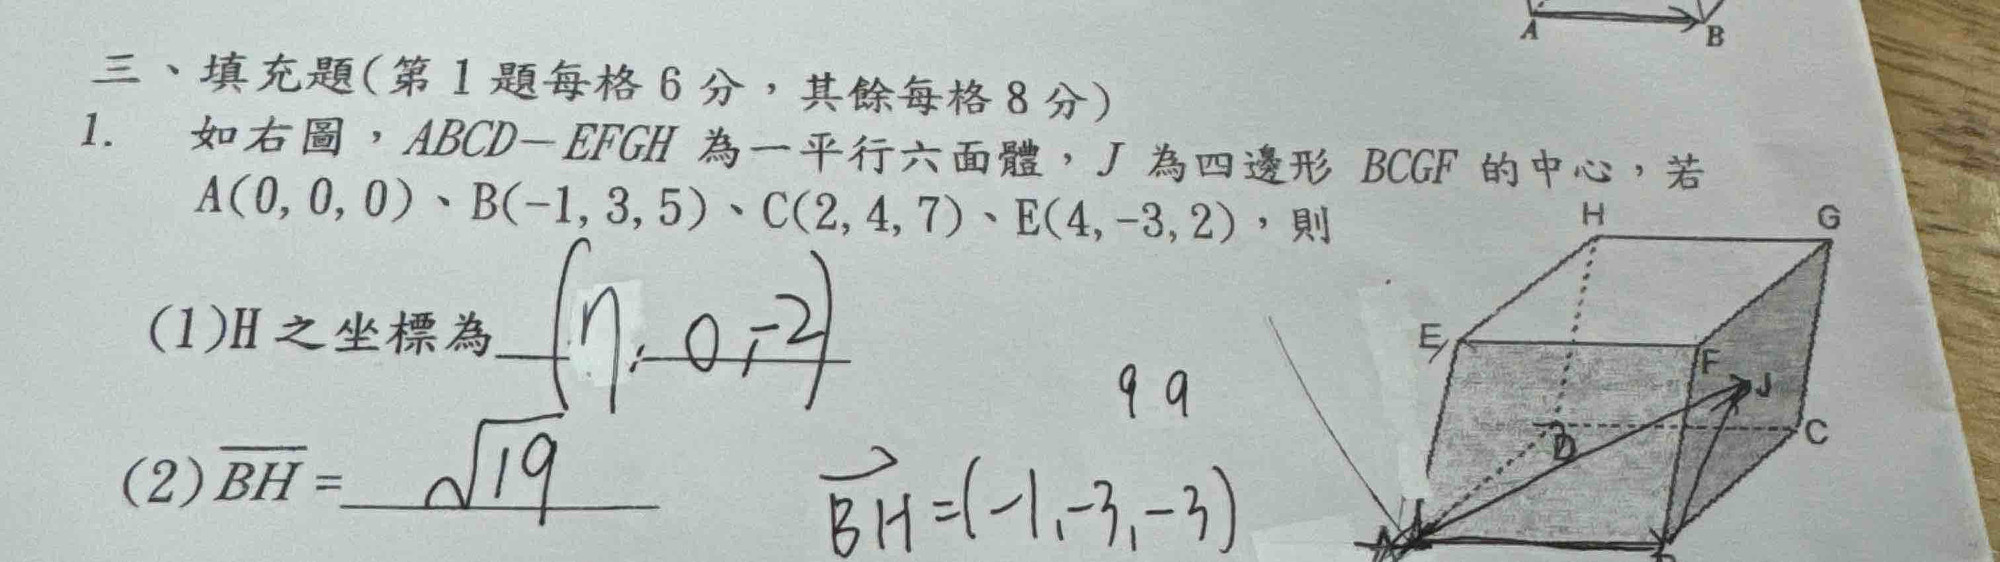 A B
三、填充題(第1題每格6分,其餘每格8分)
1. 如右圖,ABCD-EFGH 為一平行六面體,J 為四邊形 BCGF 的中心,若
A(0,0,0)、B(-1,3,5)、C(2,4,7)、E(4,-3,2),則
H G
(1)H之坐標為 (7, 0, -2)
E F J
9 9
D C
(2)BH= √19
BH=(-1,-3,-3)
A B